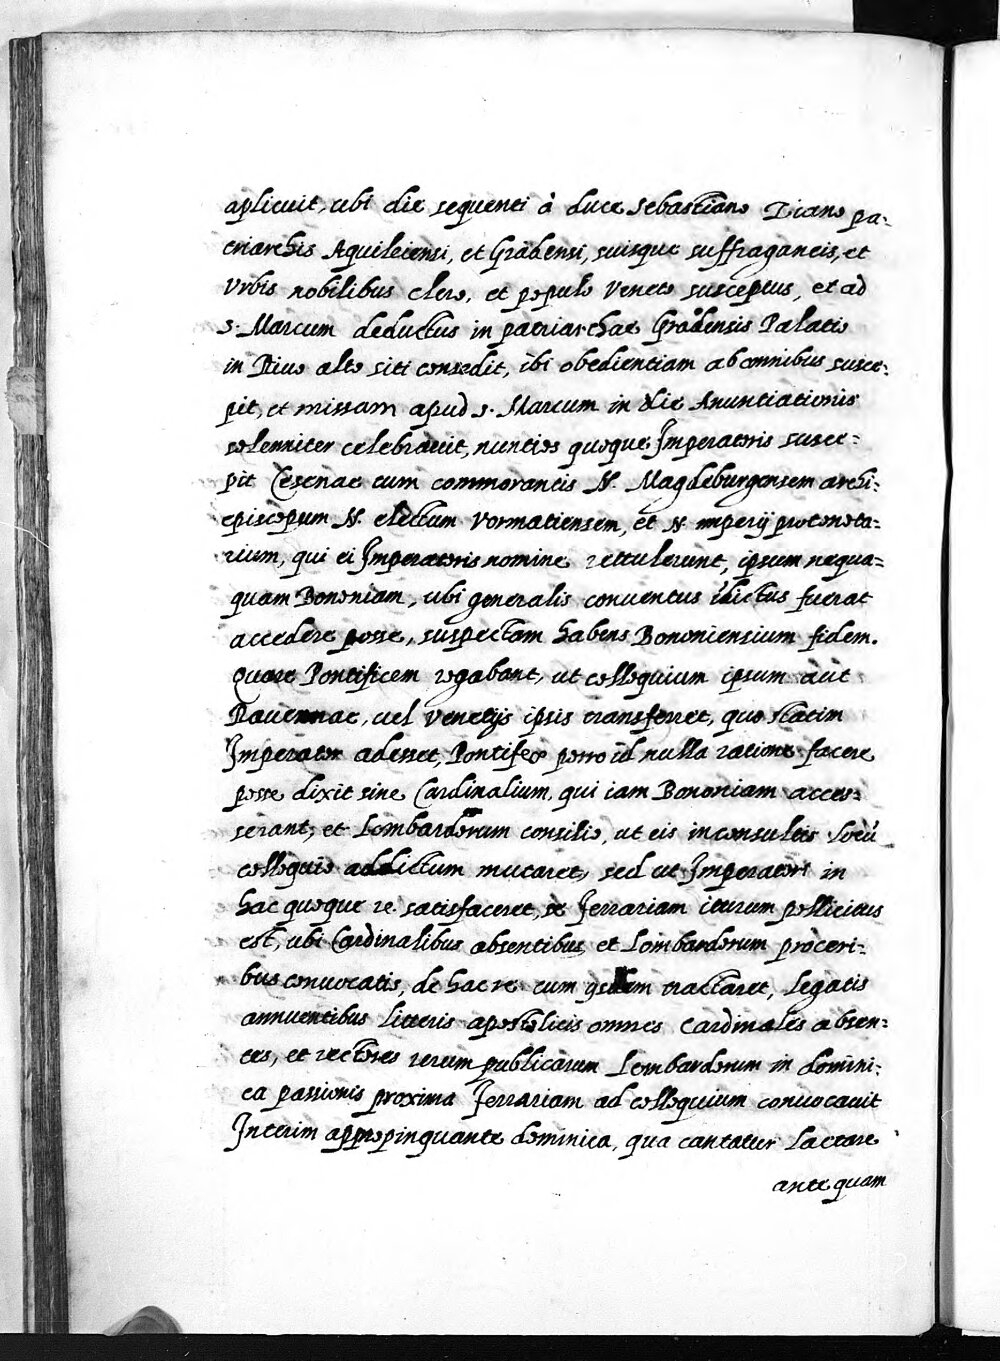 aplicuit, ubi die sequenti à duce Sebastiano Ziano pa-
triarchis Aquileiensi, et Gradensi, suisque suffraganeis, et
Urbis nobilibus clero, et populo Veneto susceptus, et ad
S. Marcum deductus in patriarchae Gradensis Palatio
in Rivo alto siti consedit, ibi obedientiam ab omnibus susce-
pit, et missam apud S. Marcum in die Anuntiationis
solemniter celebravit, nuntios quoque Imperatoris susce-
pit Cesenae tum commorantis N. Magdeburgensem archi-
episcopum N. electum Vormatiensem, et N. imperij protonota-
rium, qui ei Imperatoris nomine rettulerunt, ipsum nequa-
quam Bononiam, ubi generalis conventus idictus fuerat
accedere posse, suspectam habens Bononiensium fidem.
Quare Pontificem rogabant, ut colloquium ipsum aut
Ravennae, vel Venetijs ipsis transferret, quo statim
Imperator adesset, Pontifex porro id nulla ratione facere
posse dixit sine Cardinalium, qui iam Bononiam acces-
serant, et Lombardorum consilio, ut eis inconsultis locū
colloquio addictum mutaret, sed ut Imperatori in
hac quoque re satisfaceret, se Ferrariam iturum pollicitus
est, ubi Cardinalibus absentibus, et Lombardorum proceri-
bus convocatis, de hac re cum ijsdem tractaret, legatis
annuentibus litteris apostolicis omnes Cardinales absen-
tes, et rectores rerum publicarum Lombardorum in domini-
ca passionis proxima Ferrariam ad colloquium convocavit
Interim appropinquante dominica, qua cantatur Laetare
ante quam